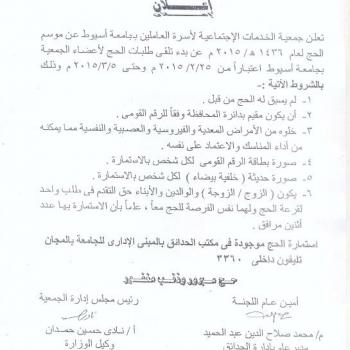 إعلان
تعلن جمعية الخدمات الإجتماعية لأسرة العاملين بجامعة أسيوط عن موسم
الحج لعام ١٤٣٦ هـ / ٢٠١٥ م عن بدء تلقى طلبات الحج لأعضاء الجمعية
بجامعة أسيوط اعتباراً من ٢٠١٥/٢/٢٥ م وحتى ٢٠١٥/٣/٥ م وذلك
بالشروط الأتية :-
١- لم يسبق له الحج من قبل .
٢- أن يكون مقيم بدائرة المحافظة وفقاً للرقم القومى .
٣- خلوه من الأمراض المعدية والفيروسية والعصبية والنفسية مما يمكنه
من أداء المناسك والاعتماد على نفسه .
٤- صورة بطاقة الرقم القومى لكل شخص بالاستمارة .
٥- صورة حديثة ( خلفية بيضاء ) لكل شخص بالاستمارة .
٦- يكون ( الزوج / الزوجة ) والوالدين والأبناء حق التقدم فى طلب واحد
لقرعة الحج ولهما نفس الفرصة للحج معاً ، علماً بأن الاستمارة بها عدد
أثنين مرافق .
استمارة الحج موجودة فى مكتب الحدائق بالمبنى الإدارى للجامعة بالمجان
تليفون داخلى ٣٣٦٠
حج مبرور وذنب مغفور
أمين عام اللجنة
رئيس مجلس إدارة الجمعية
م/ محمد صلاح الدين عبد الحميد
أ / نادى حسين حمدان
مدير عام إدارة الحدائق
وكيل الوزارة